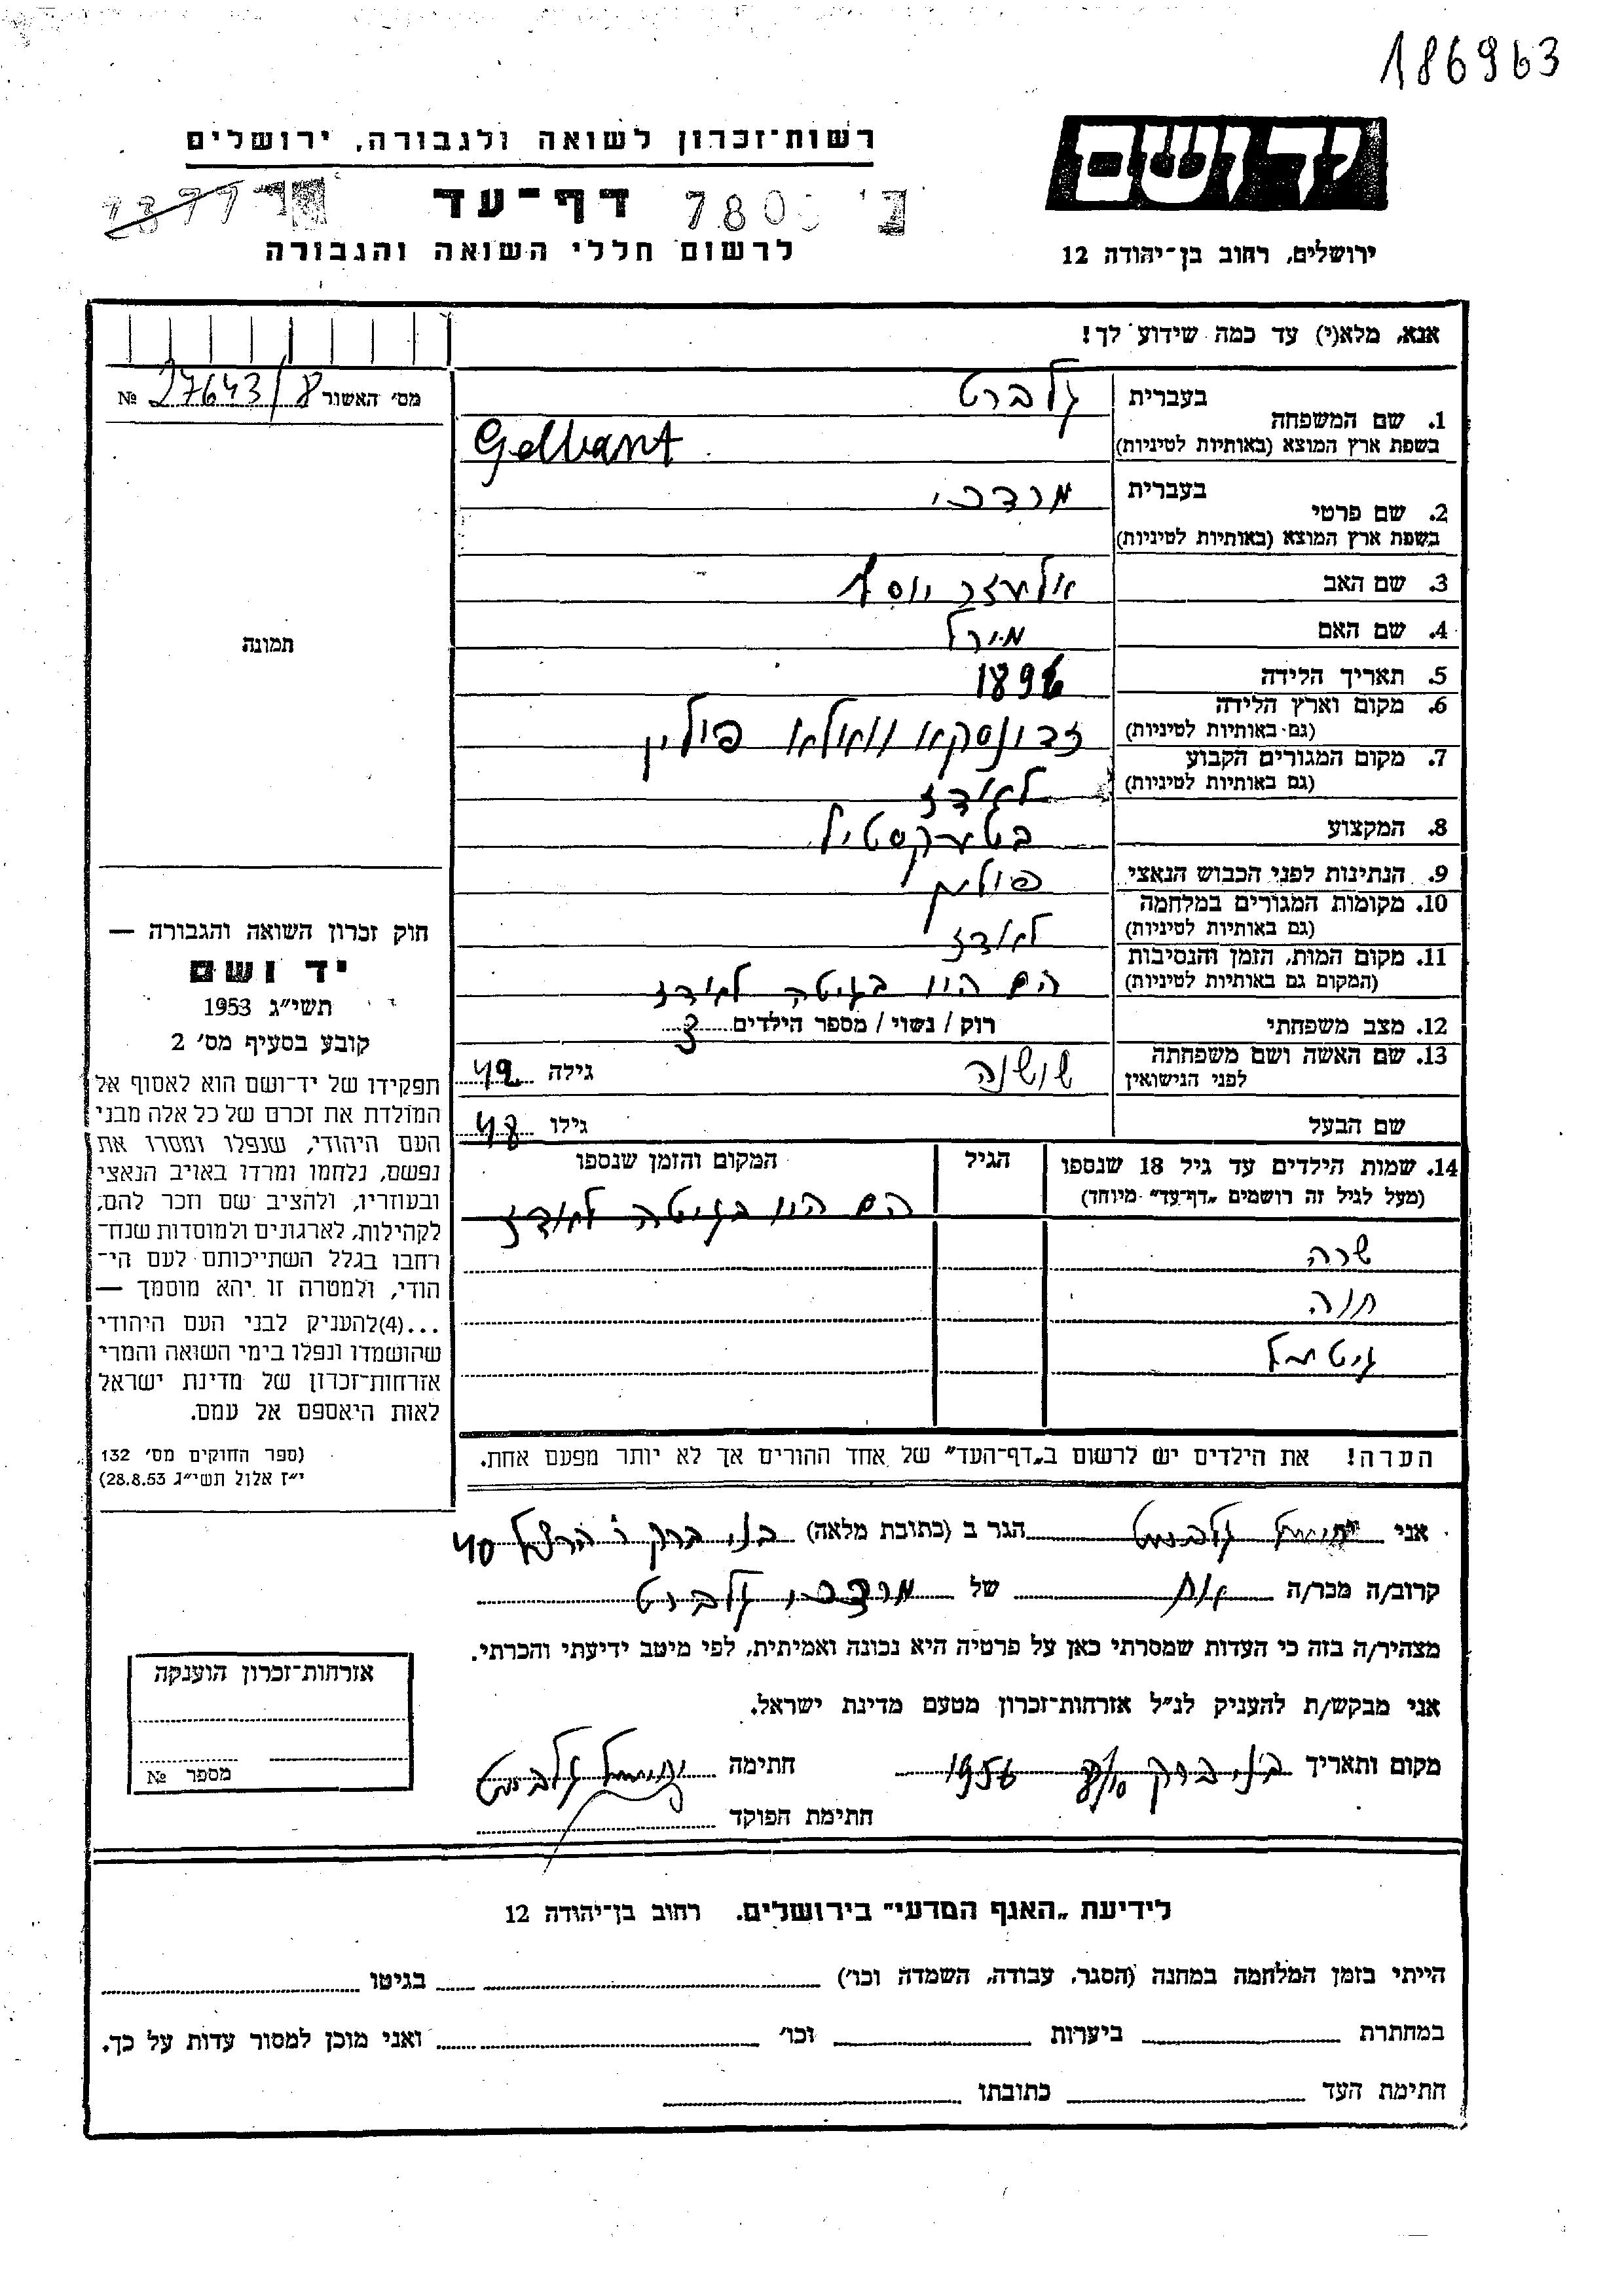 186963
יד ושם
רשות־זכרון לשואה ולגבורה, ירושלים
דף־עד
ירושלים, רחוב בן־יהודה 12
לרשום חללי השואה והגבורה
אנא, מלא(י) עד כמה שידוע לך!
מס׳ האשור 27643/8 №
1. שם המשפחה
בעברית גלברט
בשפת ארץ המוצא (באותיות לטיניות) Gelbart
2. שם פרטי
בעברית מרדכי
בשפת ארץ המוצא (באותיות לטיניות)
3. שם האב אלעזר יוסף
4. שם האם מירל
5. תאריך הלידה
6. מקום וארץ הלידה
(גם באותיות לטיניות) זדונסקא וואלא פולין
7. מקום המגורים הקבוע
(גם באותיות לטיניות) לאודז
8. המקצוע בטעקסטיל
9. הנתינות לפני הכבוש הנאצי
10. מקומות המגורים במלחמה
(גם באותיות לטיניות) לאודז
11. מקום המות, הזמן והנסיבות
(המקום גם באותיות לטיניות) הם היו בגיטה לאודז
12. מצב משפחתי רוק / נשוי / מספר הילדים 3
13. שם האשה ושם משפחתה
לפני הנישואין שושנה גילה 42
שם הבעל גילו 48
14. שמות הילדים עד גיל 18 שנספו
(מעל לגיל זה רושמים „דף־עד״ מיוחד)
הגיל
המקום והזמן שנספו
הם היו בגיטה לאודז
שרה
חנה
גיטל
הערה! את הילדים יש לרשום ב„דף־העד״ של אחד ההורים אך לא יותר מפעם אחת.
תמונה
חוק זכרון השואה והגבורה —
יד ושם
תשי״ג 1953
קובע בסעיף מס׳ 2
תפקידו של יד־ושם הוא לאסוף אל
המולדת את זכרם של כל אלה מבני
העם היהודי, שנפלו ומסרו את
נפשם, נלחמו ומרדו באויב הנאצי
ובעוזריו, ולהציב שם וזכר להם,
לקהילות, לארגונים ולמוסדות שנח־
רחבו בגלל השתייכותם לעם הי־
הודי, ולמטרה זו יהא מוסמך —
...(4)להעניק לבני העם היהודי
שהושמדו ונפלו בימי השואה והמרי
אזרחות־זכרון של מדינת ישראל
לאות היאספם אל עמם.
(ספר החוקים מס׳ 132
י״ז אלול תשי״ג 28.8.53)
אני גלברט הגר ב (כתובת מלאה) בני ברק ר הרצל 40
קרוב/ה מכר/ה אח של מרדכי גלברט
מצהיר/ה בזה כי העדות שמסרתי כאן על פרטיה היא נכונה ואמיתית, לפי מיטב ידיעתי והכרתי.
אני מבקש/ת להעניק לנ״ל אזרחות־זכרון מטעם מדינת ישראל.
מקום ותאריך בני ברק 1956 חתימה גלברט
חתימת הפוקד
אזרחות־זכרון הוענקה
מספר №
לידיעת „האגף המדעי״ בירושלים. רחוב בן־יהודה 12
הייתי בזמן המלחמה במחנה (הסגר, עבודה, השמדה וכו׳) בגיטו
במחתרת ביערות וכו׳ ואני מוכן למסור עדות על כך.
חתימת העד כתובתו